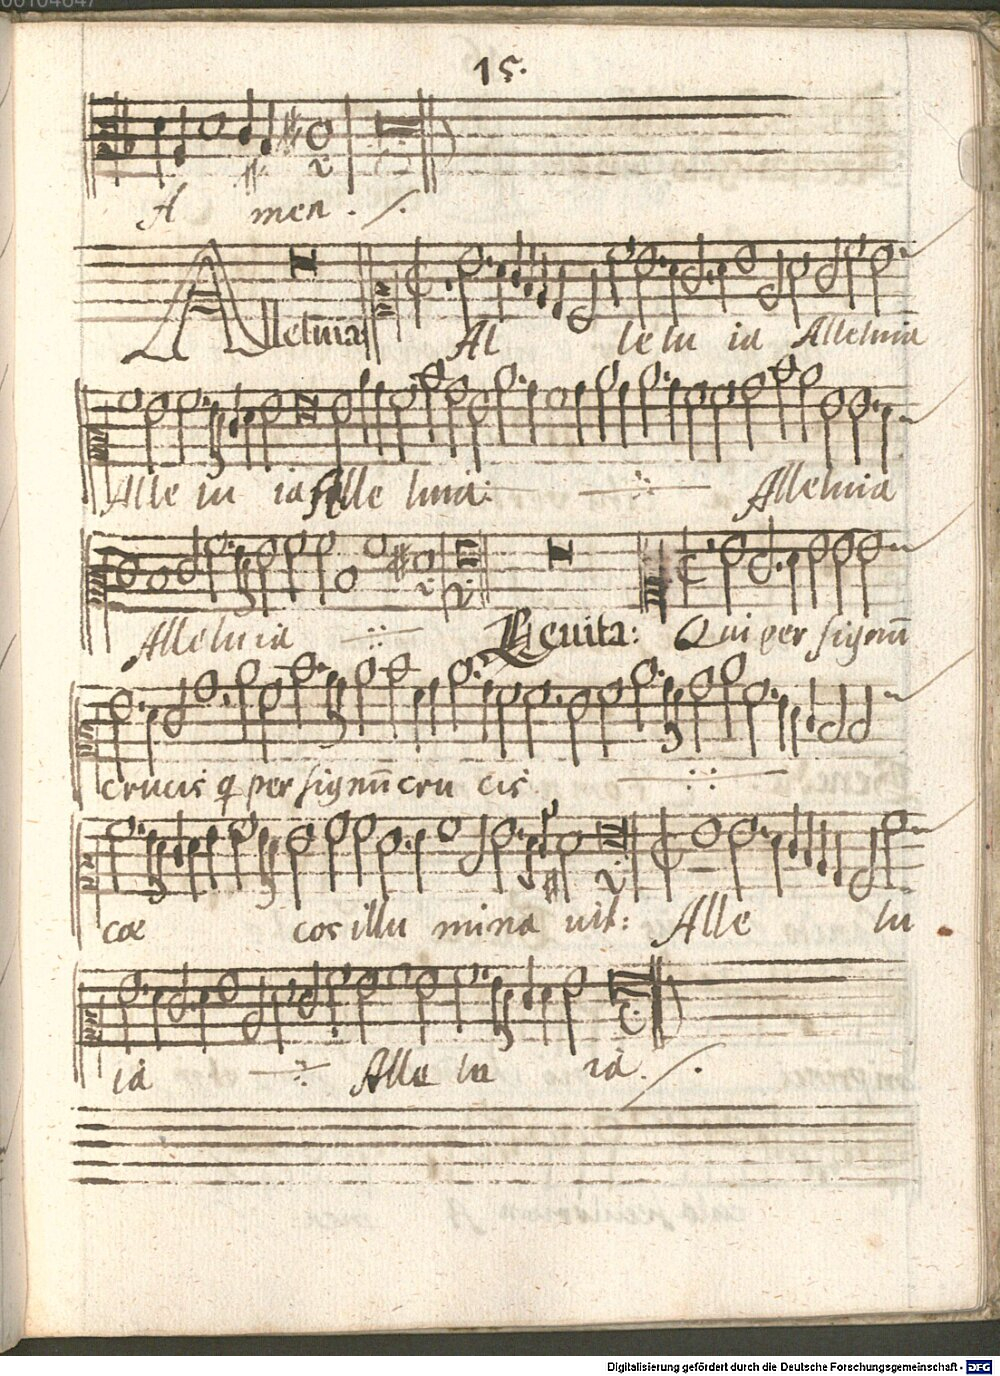 15.
A men ·/·
Alleluia Al le lu ia Alleluia
Alle lu ia Alle luia: Alleluia
Alleluia Leuita: Qui per signū
crucis q per signū cru cis.
cœ cos illu mina uit: Alle lu
ia Alle lu ia ·/·
Digitalisierung gefördert durch die Deutsche Forschungsgemeinschaft - DFG